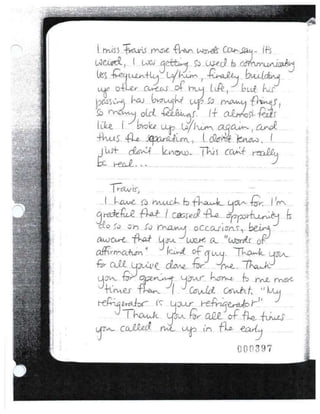 I miss Travis more than words can say. Its
weird, I was getting so used to communicating
les frequently w/him, finally building
up other areas of my life, but his
passing has brought up so many things,
so many old feelings. It almost feels
like I broke up w/him again, and
thus the separation, I don't know. I
just don't know. This can't really
be real...
Travis,
I have so much to thank you for. I'm
grateful that I the opportunity to
do so on so many occasions, being
aware that you were a "words of
affirmation" kind of guy. Thank you
for all you've done for me. Thank
you for opening your home to me more
times than I could count. "My
refrigerator is your refrigerator"
Thank you for all of the times
you called me up in the early
000397